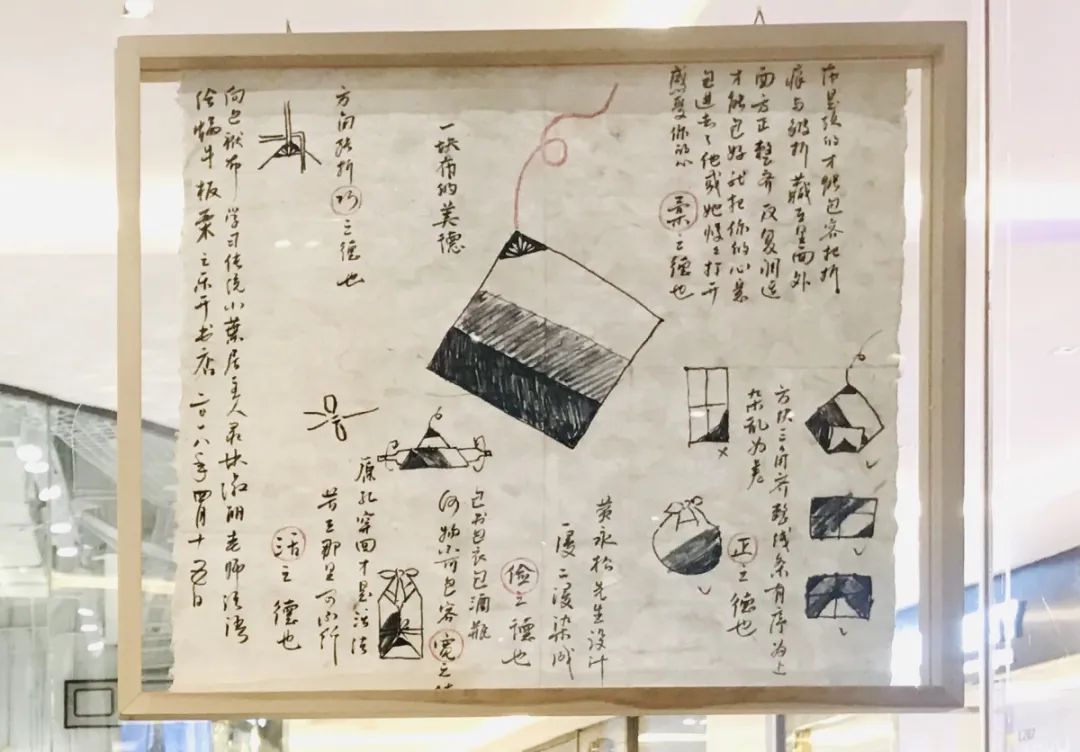 一块布的美德
布是软的才能包容把折
痕与皱折藏在里面外
面方正整齐反复调适
才能包好就把你的心意
包进去了他或她慢慢打开
感受你的心
柔之德也
方块三角齐整线条有序为上
杂乱为差
正之德也
黄永松先生设计
一浸二浸染成
俭之德也
包书包衣包酒瓶
何物不可包容宽之
原孔穿回才是活法
若在那里可以行
活之德也
方向转折巧之德也
向包袱布学习传统小叶居主人录林淑丽老师法语
给蜗牛板栗之乐开书店二〇一八年四月十五日